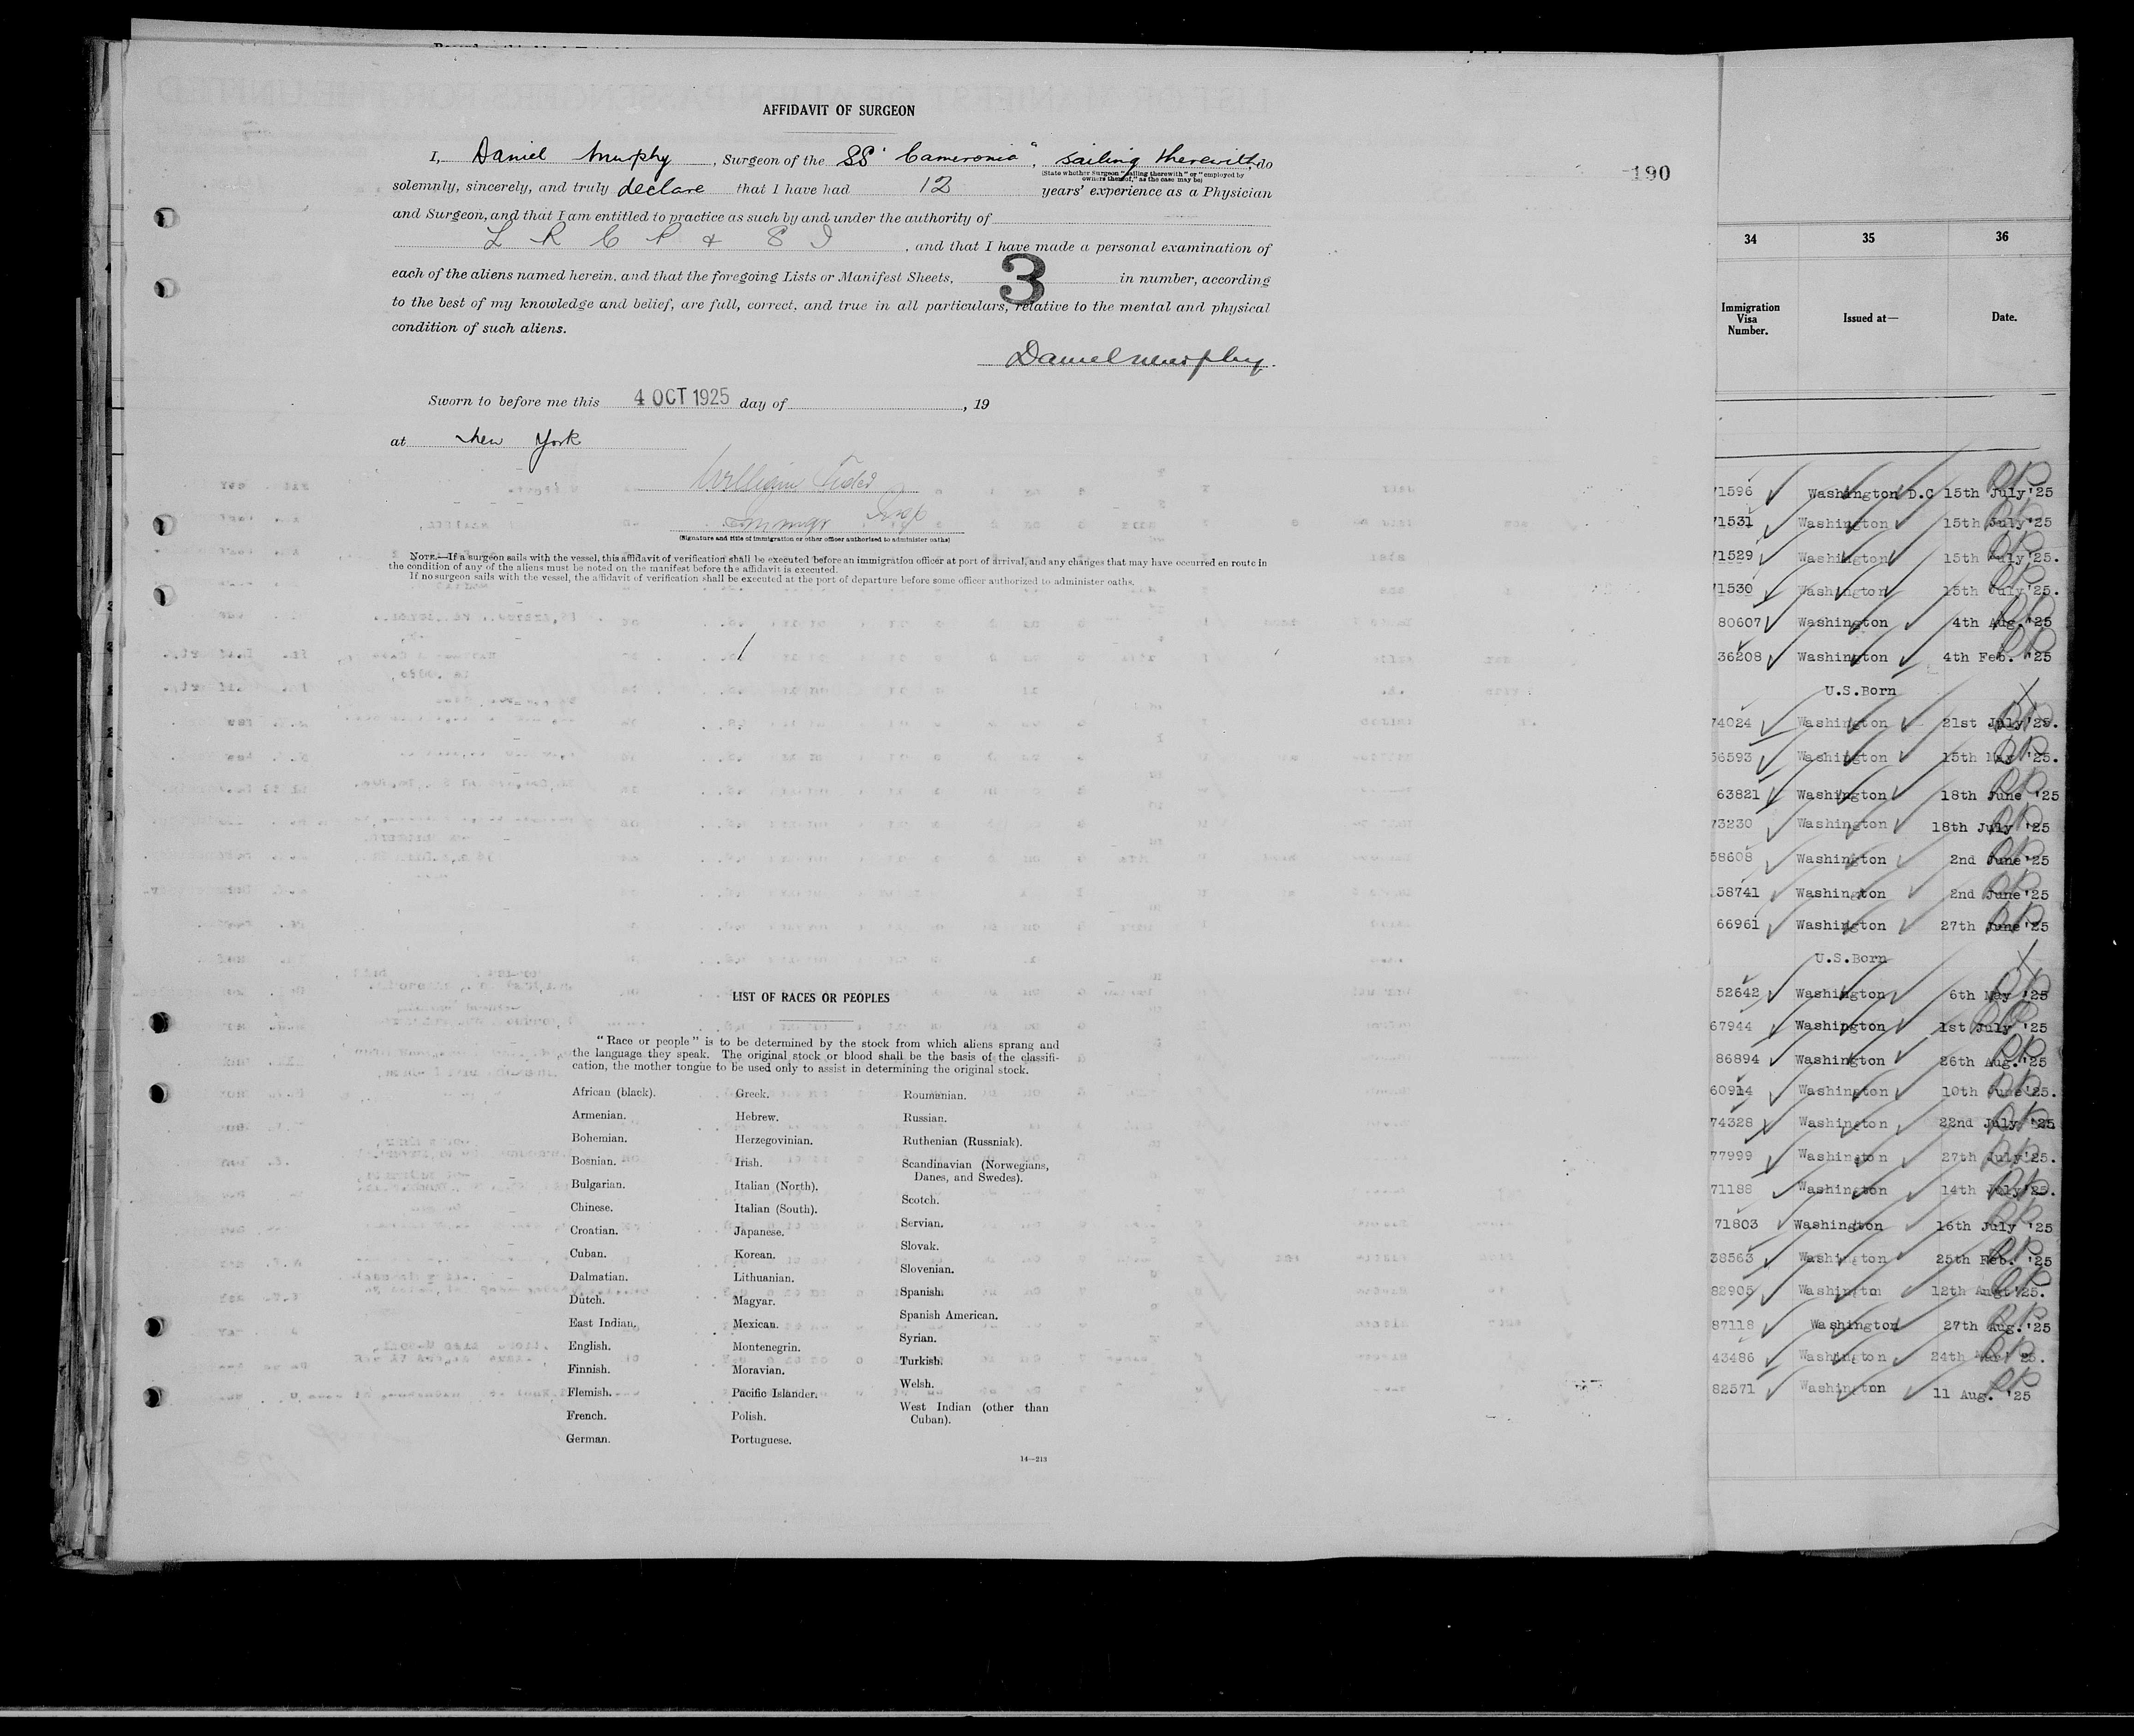 AFFIDAVIT OF SURGEON
I, Daniel Murphy, Surgeon of the SS "Cameronia", sailing therewith, do
(State whether Surgeon "sailing therewith" or "employed by
owners thereof," as the case may be)
solemnly, sincerely, and truly declare that I have had 12 years' experience as a Physician
and Surgeon, and that I am entitled to practice as such by and under the authority of
L R C P & S I, and that I have made a personal examination of
each of the aliens named herein, and that the foregoing Lists or Manifest Sheets, 3 in number, according
to the best of my knowledge and belief, are full, correct, and true in all particulars, relative to the mental and physical
condition of such aliens.
Daniel Murphy.
Sworn to before me this 4 OCT 1925 day of , 19
at New York
William
Immgr Insp
(Signature and title of immigration or other officer authorized to administer oaths)
NOTE.—If a surgeon sails with the vessel, this affidavit of verification shall be executed before an immigration officer at port of arrival, and any changes that may have occurred en route in
the condition of any of the aliens must be noted on the manifest before the affidavit is executed.
If no surgeon sails with the vessel, the affidavit of verification shall be executed at the port of departure before some officer authorized to administer oaths.
LIST OF RACES OR PEOPLES
"Race or people" is to be determined by the stock from which aliens sprang and
the language they speak. The original stock or blood shall be the basis of the classifi-
cation, the mother tongue to be used only to assist in determining the original stock.
African (black).
Armenian.
Bohemian.
Bosnian.
Bulgarian.
Chinese.
Croatian.
Cuban.
Dalmatian.
Dutch.
East Indian.
English.
Finnish.
Flemish.
French.
German.
Greek.
Hebrew.
Herzegovinian.
Irish.
Italian (North).
Italian (South).
Japanese.
Korean.
Lithuanian.
Magyar.
Mexican.
Montenegrin.
Moravian.
Pacific Islander.
Polish.
Portuguese.
Roumanian.
Russian.
Ruthenian (Russniak).
Scandinavian (Norwegians,
Danes, and Swedes).
Scotch.
Servian.
Slovak.
Slovenian.
Spanish.
Spanish American.
Syrian.
Turkish.
Welsh.
West Indian (other than
Cuban).
14—213
190
34 35 36
Immigration Visa Number. Issued at— Date.
71596 Washington D.C 15th July '25
71531 Washington 15th July '25
71529 Washington 15th July '25.
71530 Washington 15th July '25.
80607 Washington 4th Aug. '25
36208 Washington 4th Feb. '25
U.S.Born
74024 Washington 21st July '25.
56593 Washington 15th May '25.
63821 Washington 18th June '25
73230 Washington 18th July '25
58608 Washington 2nd June '25
58741 Washington 2nd June '25
66961 Washington 27th June '25
U.S.Born
52642 Washington 6th May '25
67944 Washington 1st July '25
86894 Washington 26th Aug. '25
60914 Washington 10th June '25.
74328 Washington 22nd July '25
77999 Washington 27th July '25.
71188 Washington 14th July '25.
71803 Washington 16th July '25
38563 Washington 25th Feb. '25
82905 Washington 12th Aug '25.
87118 Washington 27th Aug. '25
43486 Washington 24th Mar '25.
82571 Washington 11 Aug. '25